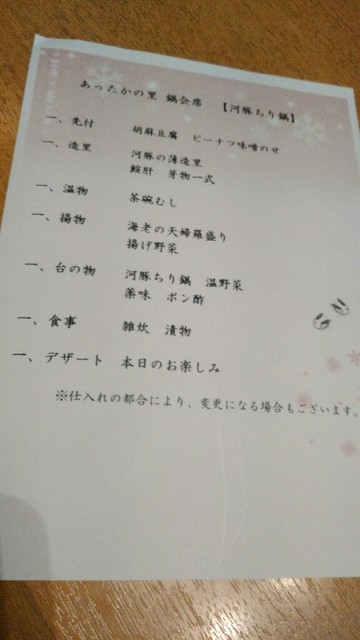 あったかの里 鍋会席 【河豚ちり鍋】
一、先付 胡麻豆腐 ピーナツ味噌のせ
一、造里 河豚の薄造里
鮟肝 芽物一式
一、温物 茶碗むし
一、揚物 海老の天婦羅盛り
揚げ野菜
一、台の物 河豚ちり鍋 温野菜
薬味 ポン酢
一、食事 雑炊 漬物
一、デザート 本日のお楽しみ
※仕入れの都合により、変更になる場合もございます。